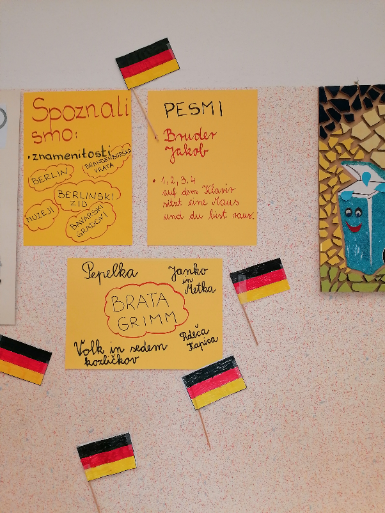 Spoznali
smo:
• znamenitosti
BRANDENBURŠKA
VRATA
BERLIN
BERLINSKI
ZID
MUZEJI
BAVARSKI
GRADOVI
PESMI
Bruder
Jakob
• 1, 2, 3, 4
auf dem Klavier
sitzt eine Maus
und du bist raus.
Pepelka
Janko
in
Metka
BRATA
GRIMM
Volk in sedem
kozličkov
Rdeča
kapica